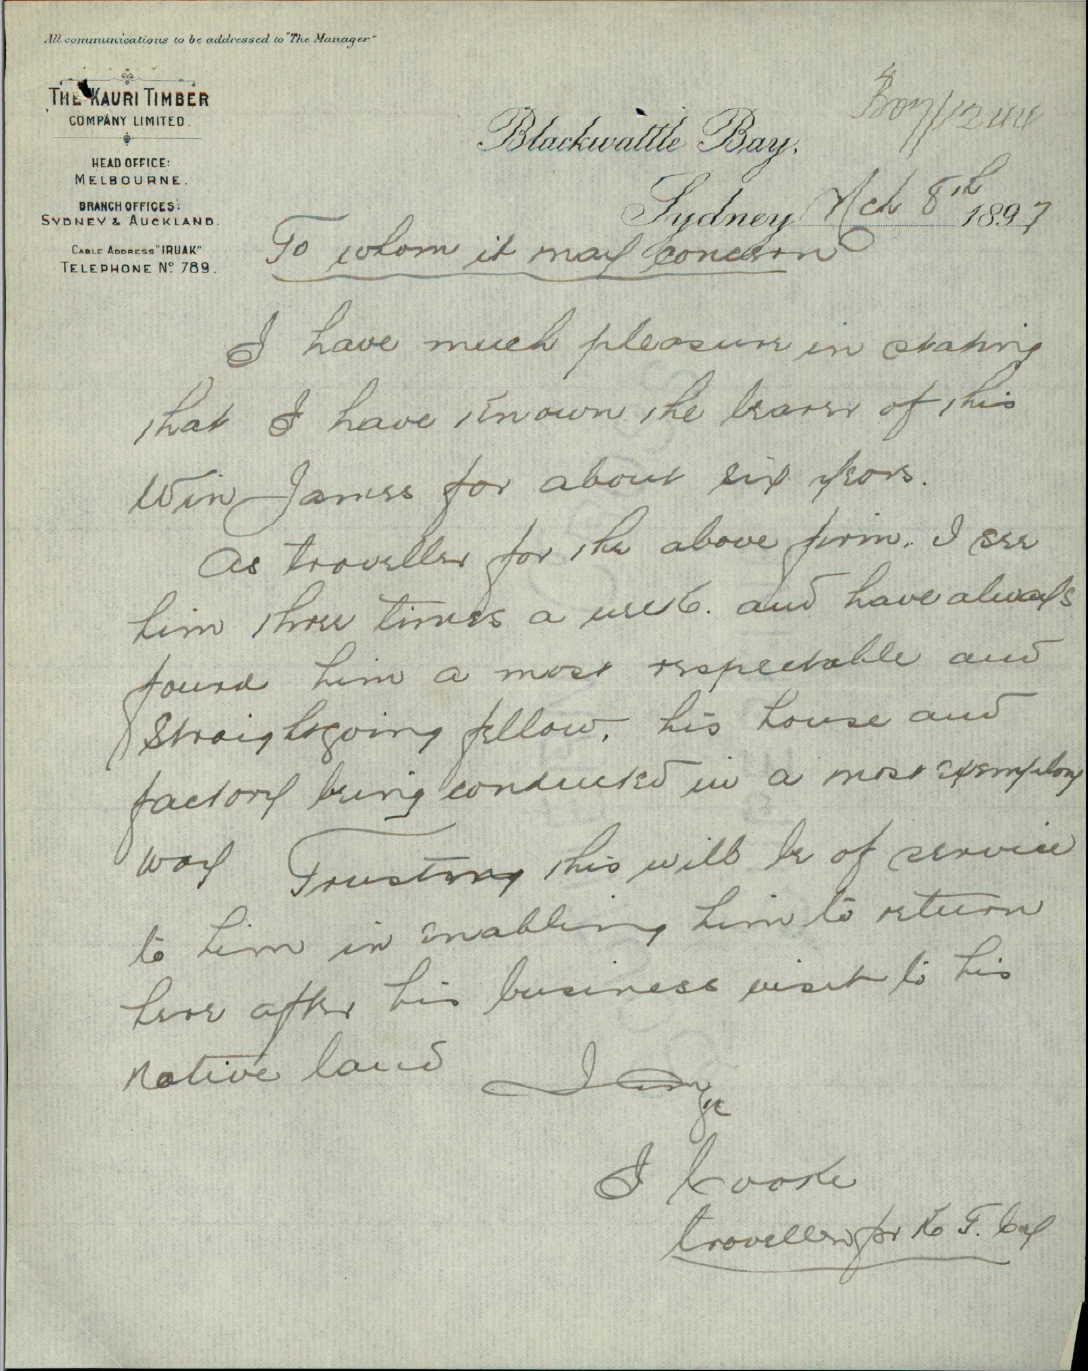 All communications to be addressed to "The Manager"
THE KAURI TIMBER
COMPANY LIMITED.
HEAD OFFICE:
MELBOURNE.
BRANCH OFFICES:
SYDNEY & AUCKLAND.
CABLE ADDRESS "IRUAK"
TELEPHONE No 789.
Blackwattle Bay,
Sydney Mch 8th 1897
To whom it may concern
I have much pleasure in stating
that I have known the bearer of this
Win James for about six years.
As traveller for the above firm. I see
him three times a week. and have always
found him a most respectable and
Straightgoing fellow, his house and
factory being conducted in a most exemplary
way Trusting this will be of service
to him in enabling him to return
here after his business visit to his
native land
I am yc
J Cooke
traveller for K. T. Coy